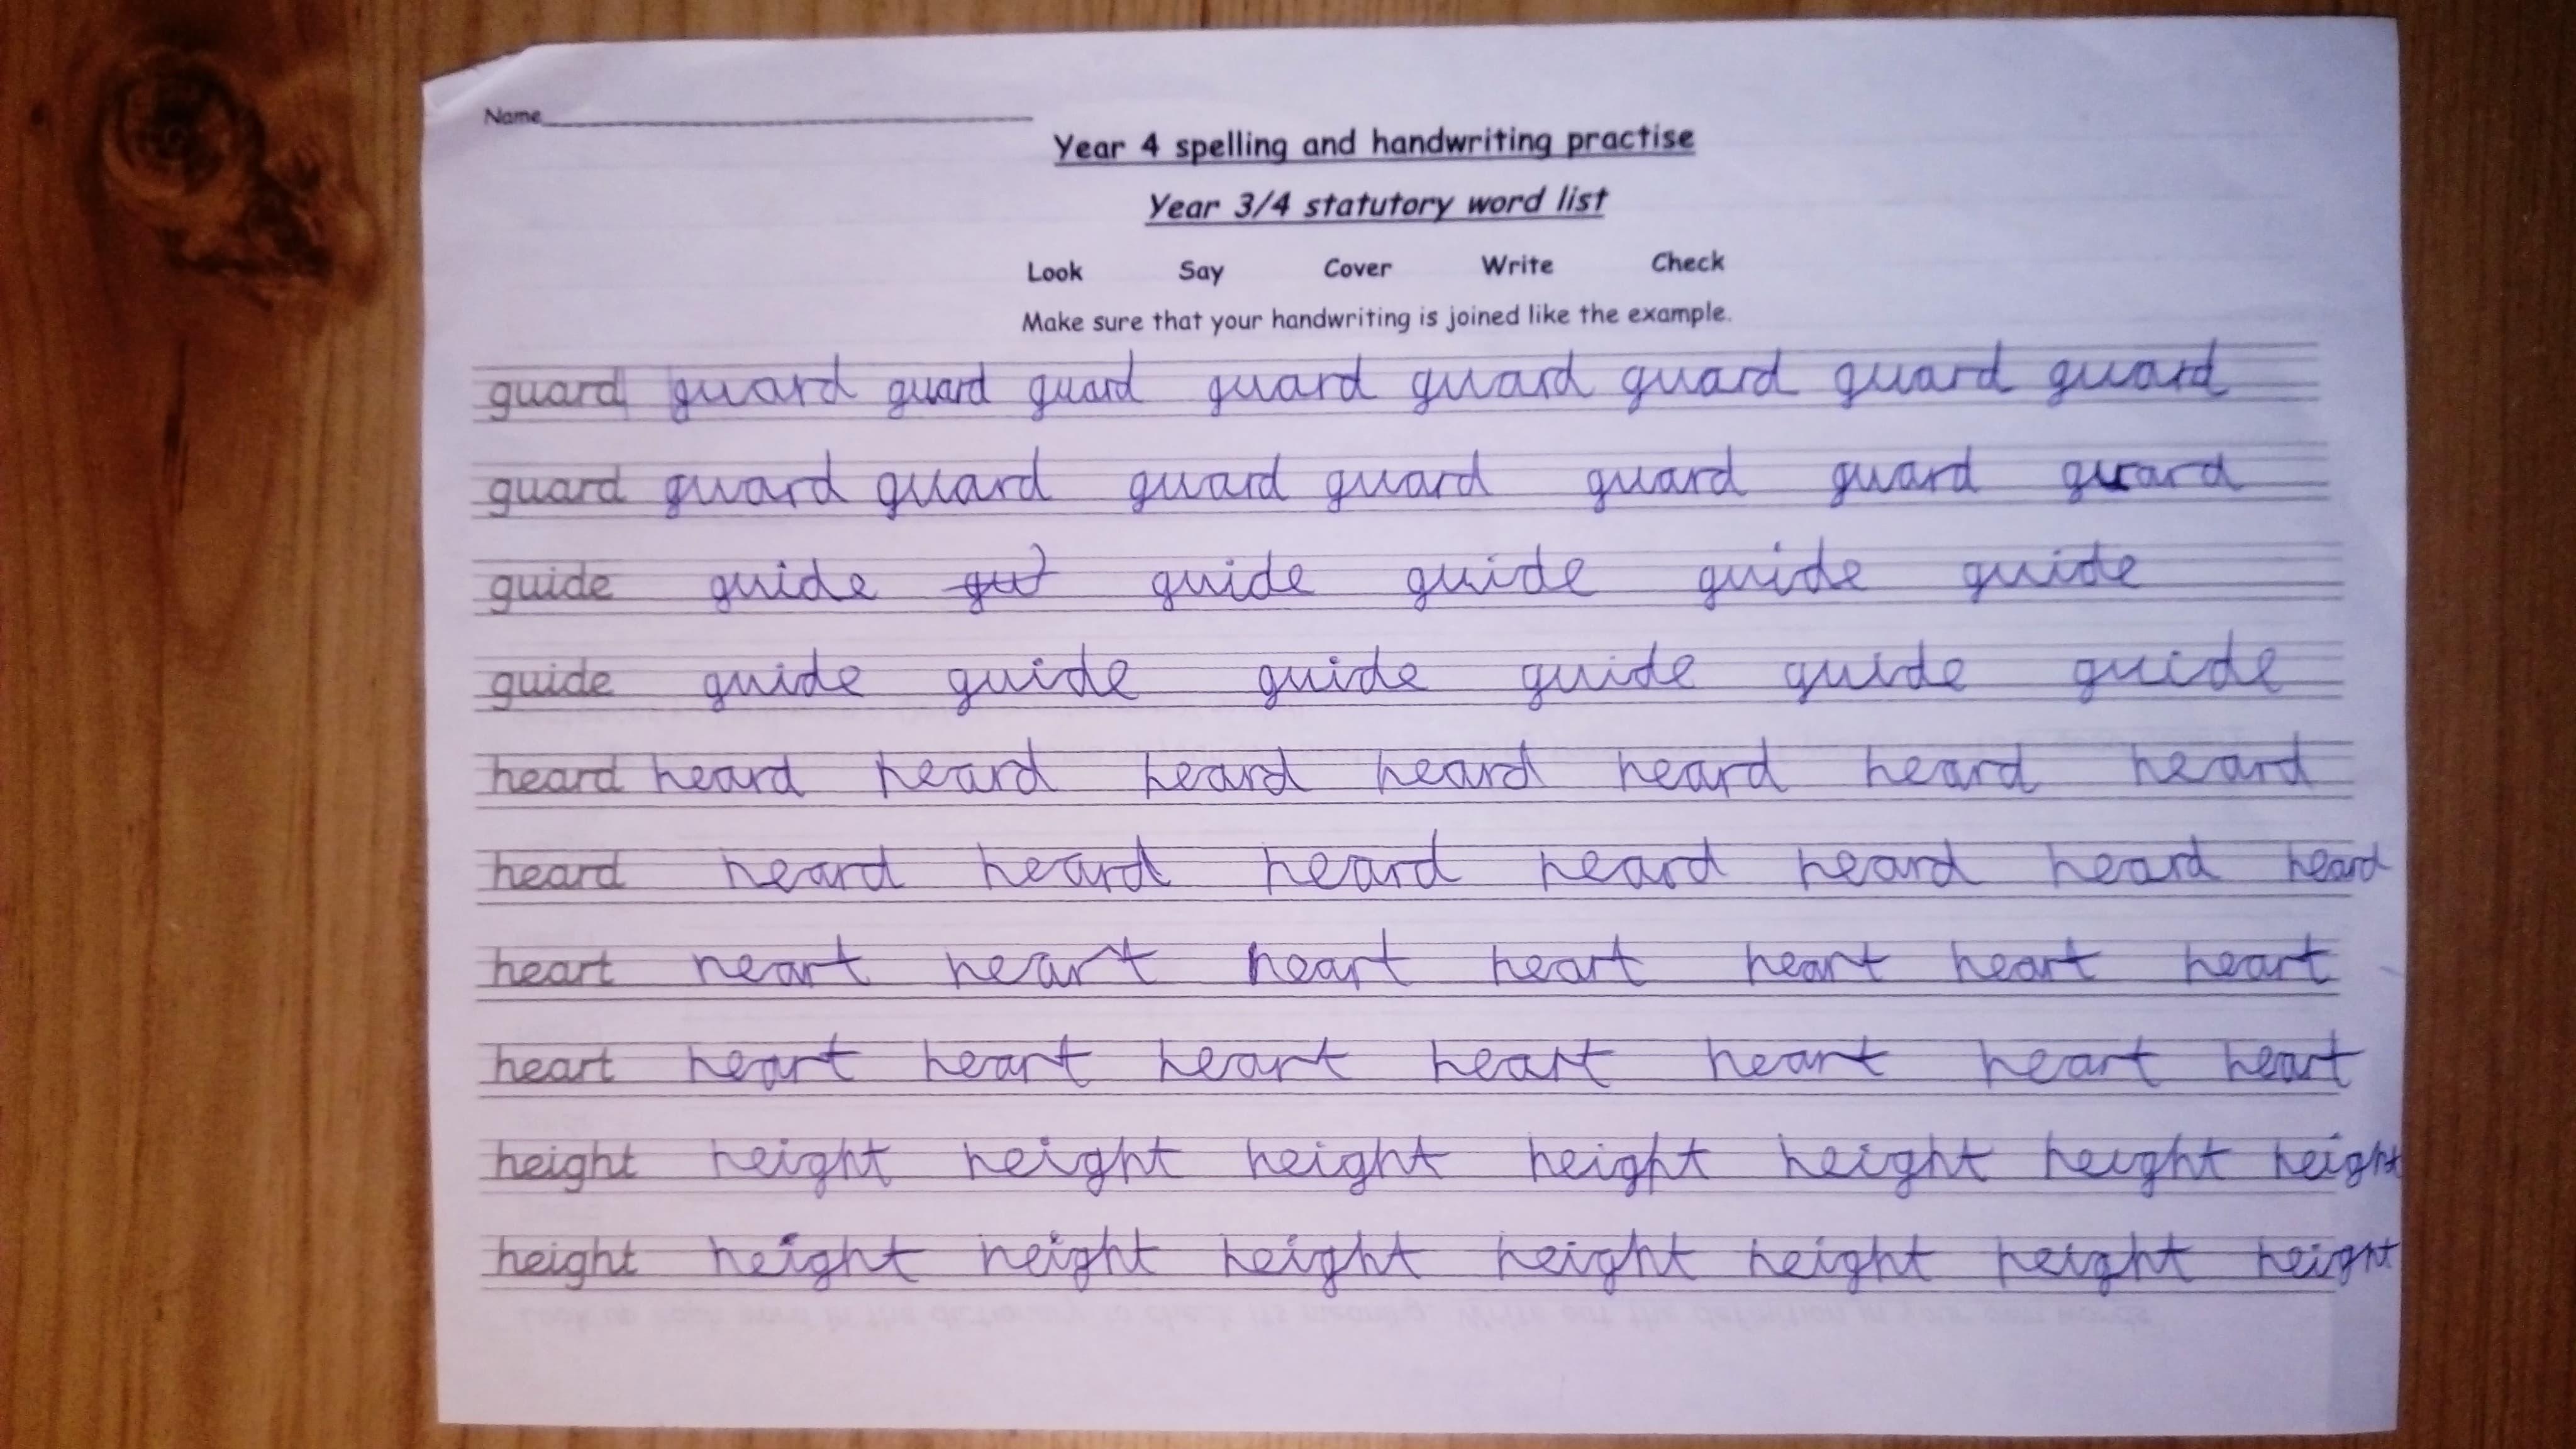 Name
Year 4 spelling and handwriting practise
Year 3/4 statutory word list
Look Say Cover Write Check
Make sure that your handwriting is joined like the example.
guard guard guard guard guard guard guard guard guard
guard guard guard guard guard guard guard guard
guide guide gui guide guide guide guide
guide guide guide guide guide guide guide
heard heard heard heard heard heard heard heard
heard heard heard heard heard heard heard heard
heart heart heart heart heart heart heart heart
heart heart heart heart heart heart heart heart
height height height height height height height height
height height height height height height height height
Look up each word in the dictionary to check its meaning. Write out the definition in your own words.